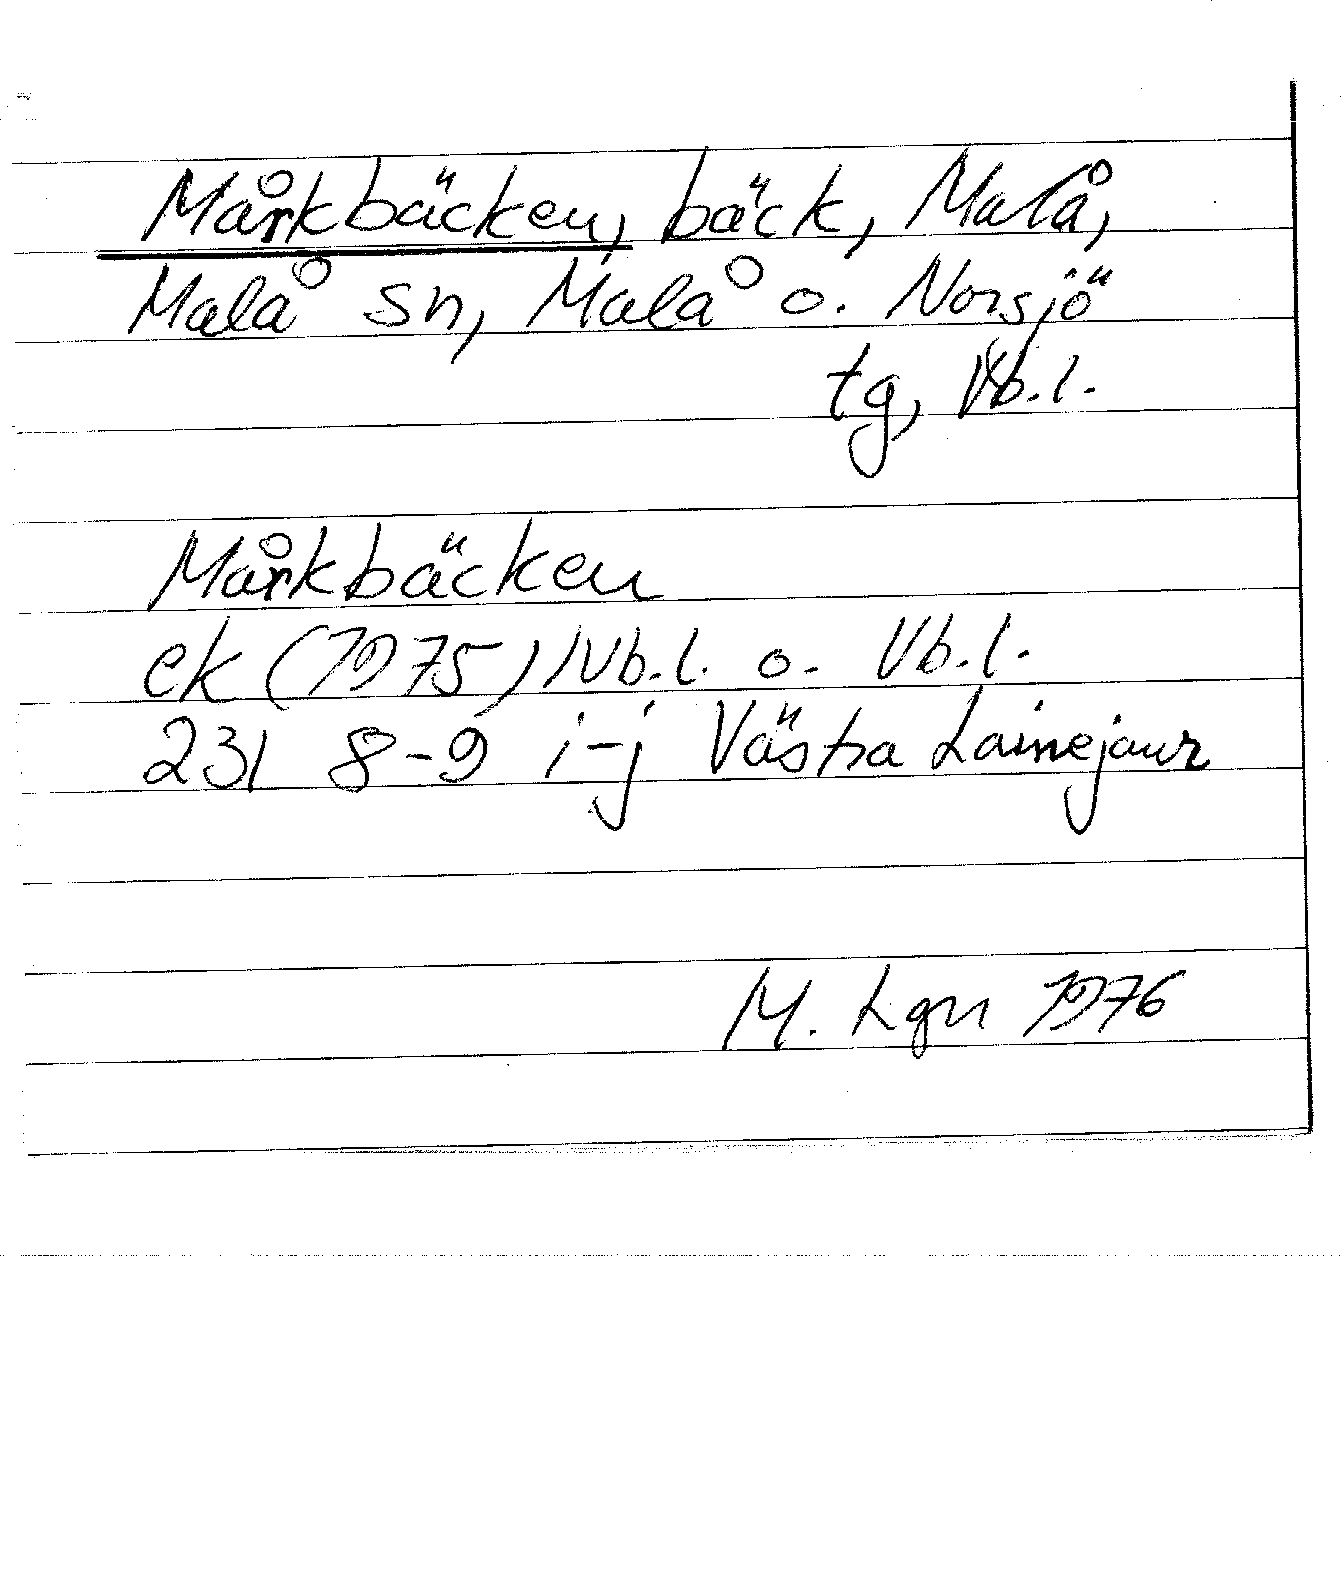 Mårkbäcken, bäck, Malå,
Malå sn, Malå o. Norsjö
tg, Vb.l.
Mårkbäcken
ek (1975) Nb.l. o. Vb.l.
231 8-9 i-j Västra Lainejaur
M. Lgn 1976